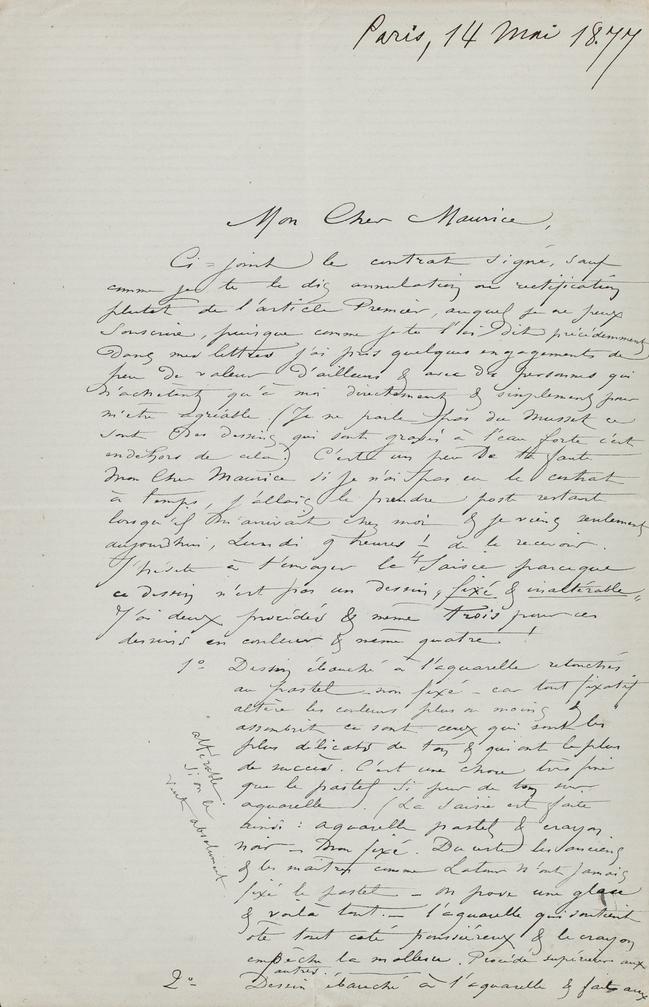 Paris, 14 Mai 1877
Mon Cher Maurice,
Ci-joint le contrat signé, sauf
comme je te le dis annulation ou rectification
plutot de l'article Premier, auquel je ne peux
souscrire, puisque comme je te l'ai dit précédemment
Dans mes lettres j'ai pris quelques engagements de
peu de valeur d'ailleurs & avec des personnes qui
n'achètent qu'à moi directement & simplement pour
m'être agréable. (Je ne parle pas du Musset ce
sont des dessins qui sont gravés à l'eau forte c'est
en dehors de cela.) C'est un peu ta faute
Mon Cher Maurice si je n'ai pas eu le contrat
à temps, j'allais le prendre post restant
lorsqu'il m'arrivait chez moi & je viens seulement
aujourdhui, Lundi 9 heures ! de le recevoir.
J'hésite à t'envoyer le "Saisie parceque
ce dessin n'est pas un dessin, fixé & inaltérable."
J'ai deux procédés & même trois pour ces
dessins en couleur & même quatre !
1º Dessin ébauché à l'aquarelle retouchés
au pastel non fixé - car tout fixatif
altère les couleurs plus ou moins &
assombrit ce sont ceux qui sont les
plus délicats de ton & qui ont le plus
de succès. C'est une chose très fine
que le pastel si peu de ton sur
aquarelle. (La Saisie est faite
ainsi : aquarelle pastel & crayon
noir - Non fixé. Du reste les anciens
& les maîtres comme Latour n'ont jamais
fixé le pastel - on pose une glace
& voilà tout. - l'aquarelle qui soutient
ôte tout coté poussiéreux & le crayon
empêche la mollesse. Procédé supérieur aux
autres.
altérable
si on le
veut absolument
2º Dessin ébauché à l'aquarelle & faits aux